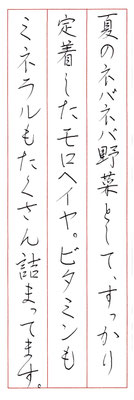 夏のネバネバ野菜として、すっかり
定着したモロヘイヤ。ビタミンも
ミネラルもたくさん詰まってます。